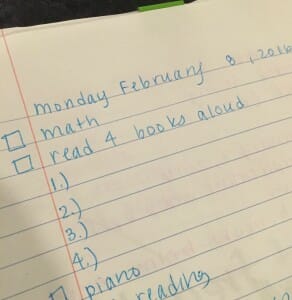 monday February 8, 2016
math
read 4 books aloud
1.)
2.)
3.)
4.)
piano
reading